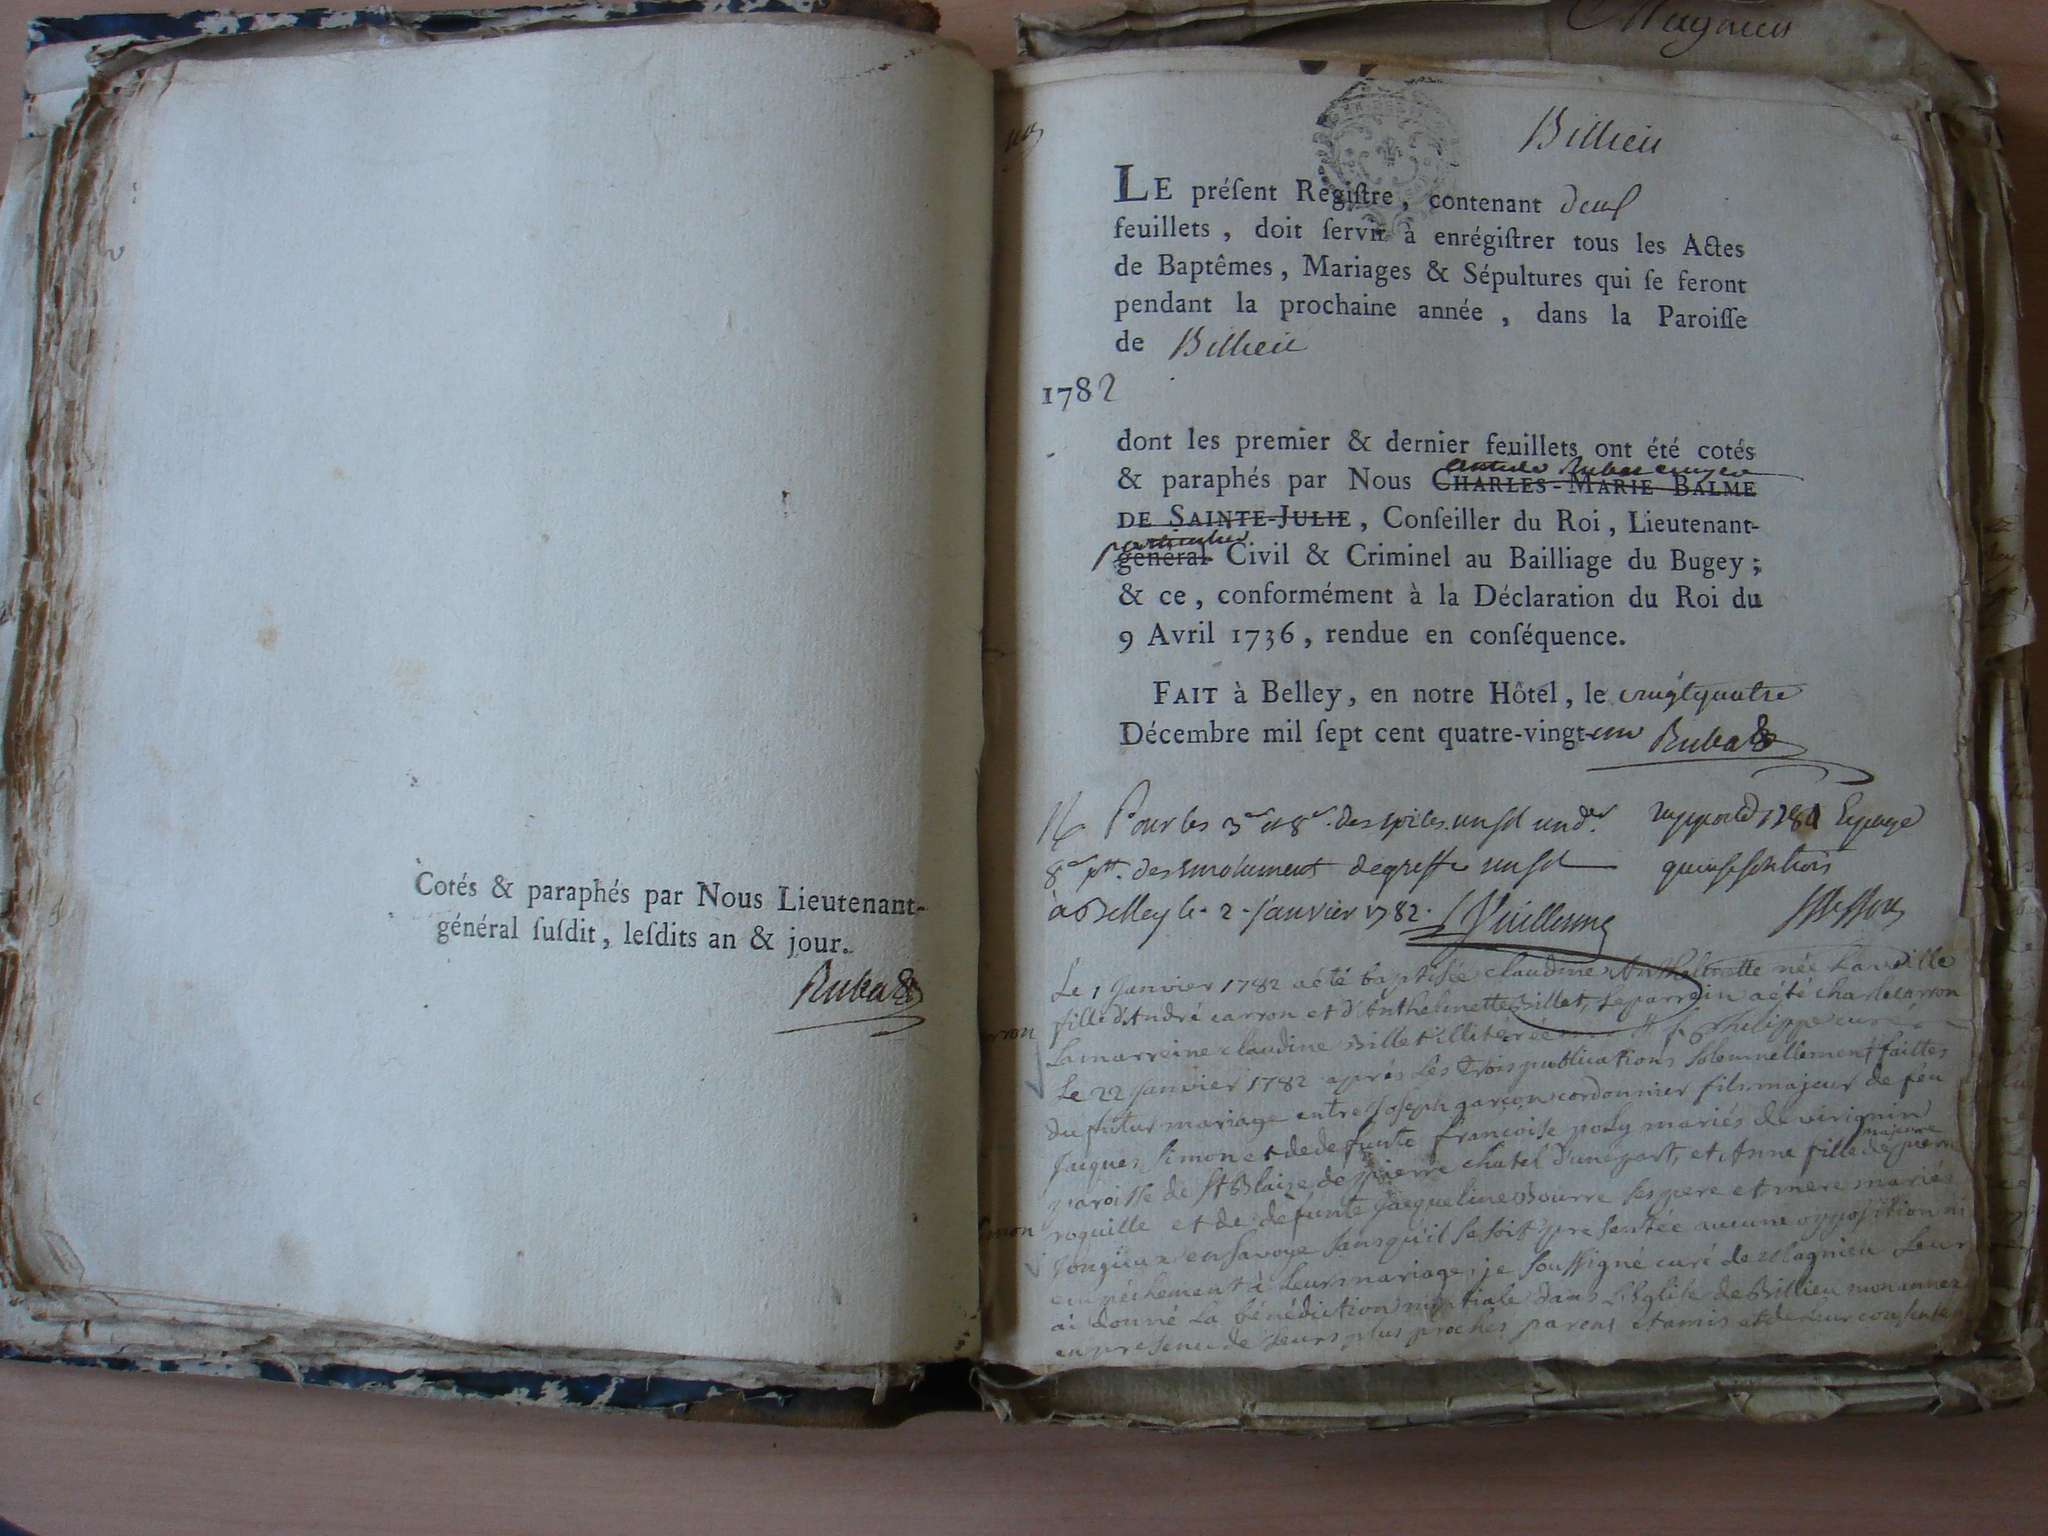 Cotés & paraphés par Nous Lieutenant-
général ſuſdit, leſdits an & jour.
Rubat
Magnieu
Billieu
LE préſent Regiſtre, contenant deux
feuillets, doit ſervir à enrégiſtrer tous les Actes
de Baptêmes, Mariages & Sépultures qui ſe feront
pendant la prochaine année, dans la Paroiſſe
de Billieu
1782
dont les premier & dernier feuillets ont été cotés
Rubat
& paraphés par Nous CHARLES-MARIE BALME
DE SAINTE-JULIE, Conſeiller du Roi, Lieutenant-
particulier
général Civil & Criminel au Bailliage du Bugey;
& ce, conformément à la Déclaration du Roi du
9 Avril 1736, rendue en conſéquence.
FAIT à Belley, en notre Hôtel, le vingtquatre
Décembre mil ſept cent quatre-vingt-un Rubat
Pour les un sol
des emolument de greffe un sol
à Belley le 2 janvier 1782. Vuillerme
Le 1 janvier 1782 a été baptisée claudine Anthelmette née la veille
fille d'André carron et d'Anthelmette Billet, Le parrein a été charle carron
carron
La marreine claudine Billet illiterée philippe curé
Le 22 janvier 1782 après Les trois publications solemnellement faittes
du futur mariage entre Joseph garçon cordonnier fils majeur de feu
jacques simon et de defunte françoise poly mariés de virignin
majeure
paroisse de st Blaise de pierre chatel d'une part, et Anne fille de pierre
roquille et de defunte jacqueline Bourre ses pere et mere mariés
simon
en savoye sans qu'il se soit presentée aucune opposition ni
empêchement à leur mariage, je soussigné curé de Magnieu Leur
ai donné La bénédiction nuptiale dans L'Eglise de Billieu mon annex
en presence de leurs plus proches parens et amis et de Leur consente